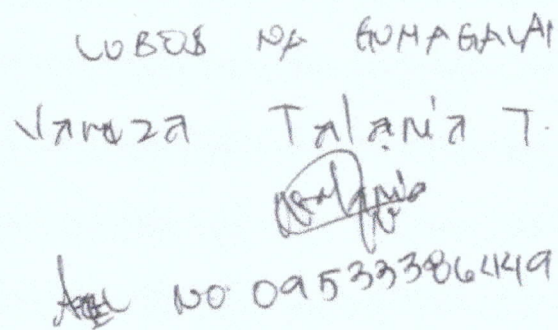 LUBOS NA GUMAGALAN
Vanuza Talania T.
NO 09533386449